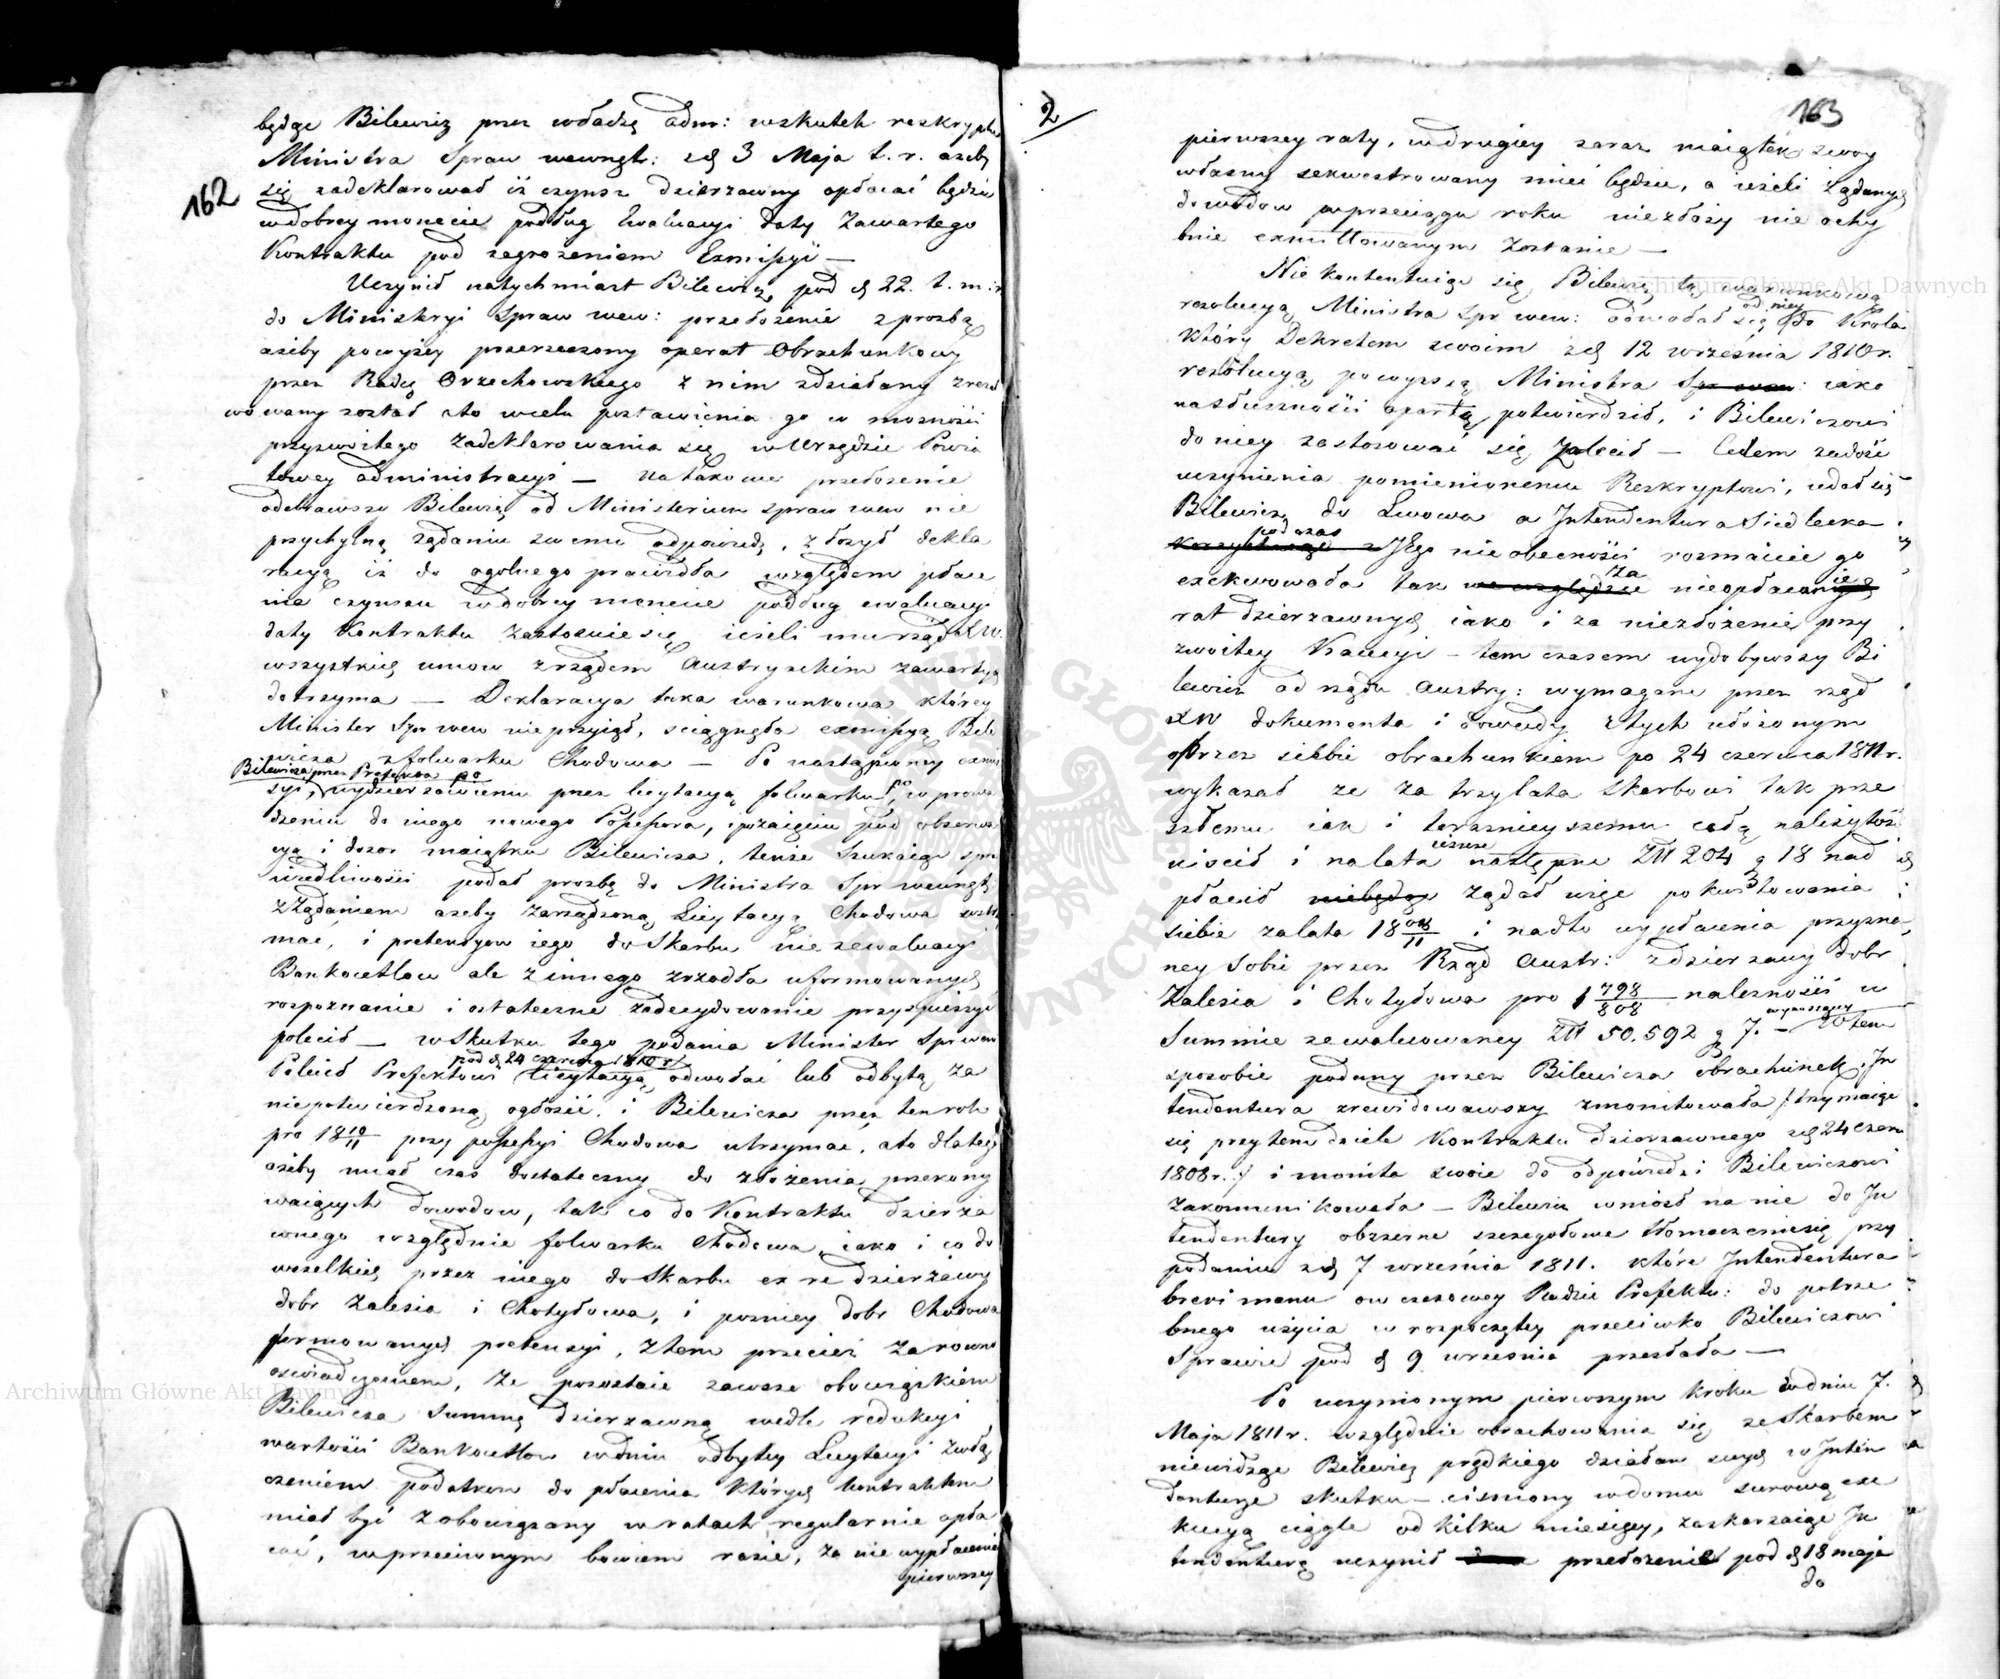 162
będąc Bilewicz przez władzę adm: wskutek reskryptu
Ministra Spraw wewnęt: z d 3 Maja t. r. ażeby
się zadeklarował iż czynsz dzierzawny opłacać będzie
w dobrey monecie podług Ewaluacyi daty zawartego
Kontraktu pod zagrożeniem Exmissyi —
Uczynił natychmiast Bilewicz pod d 22. t. m. i r.
do Ministryi Spraw wew: przełożenie z prozbą
ażeby powyżey przerzeczony operat Obrachunkowy
przez Radcę Orzechowskiego z nim zdziałany zrewido
wany został a to w celu postawienia go w możności
przyzwoitego zadeklarowania się w Urzędzie Powia
towey administracyi — na takowe przełożenie
odebrawszy Bilewicz od Ministerium Spraw wew nie
przychylną żądaniu swemu odpowiedź, złożył dekla
racyą iż do ogolnego prawidła względem płace
nia czynszu w dobrey monecie podług ewaluacyi
daty Kontraktu zastosuie się ieżeli mu rząd XW.
wszystkich umow z rządem Austryackim zawartych
dotrzyma — Deklaracya taka warunkowa którey
Minister Spr wew nie przyiął, sciągnęła exmissyą Bile
wicza z folwarku Chodowa — Po nastąpioney exmis
Bilewicza przez Prefekta po
syi, wydzierzawieniu przez licytacyą folwarku po, w prowa
dzeniu do niego nowego Possessora, i po zaięciu pod obserwa
cyą i dozor maiątku Bilewicza, tenże szukaiąc spra
wiedliwości podał prozbę do Ministra Spr wewnętz
z żądaniem ażeby zarządzoną Licytacyą Chodowa wstrzy
mać, i pretensyow iego do Skarbu nie z ewaluacyi
Bankocetlow ale z innego zrzodła uformowanych
rozpoznanie i ostateczne zadecydowanie przyspieszyć
polecił — w Skutku tego podania Minister Spr wew
pod d 24 czerwca 1810 r
Polecił Prefektowi licytacyą odwołać lub odbytą za
niepotwierdzoną ogłosić, i Bilewicza przez ten rok
pro 18 10/11 przy possessyi Chodowa utrzymać, a to dlatego
ażeby miał czas dostateczny do złożenia przekony
waiących dowodow, tak co do Kontraktu dzierża
wnego względnie folwarku Chodowa iako i co do
wszelkich przez niego do Skarbu ex re dzierżawy
dobr Zalesia i Chotyłowa, i pozniey dobr Chodowa
formowanych pretensyi, z tem przecież zarowno
oswiadczeniem, że pozostaie zawsze obowiązkiem
Bilewicza Summę dzierzawną wedle redukcyi
wartości Bankocetlow w dniu odbytey Licytacyi z wdą
czeniem podatkow do płacenia których kontraktem
miał być zobowiązany w ratach regularnie opła
cać, w przeciwnym bowiem razie, za niewypłaceniem
pierwszey
2
163
pierwszey raty, w drugiey zaraz maiątek swoy
własny sekwestrowany mieć będzie, a ieżeli żądanych
dowodow w przeciągu roku niezłoży nie ochy
bnie exmittowanym zostanie —
Nie kontentuiąc się Bilewicz tą warunkową
rezolucyą Ministra Spr wew: odwołał się od niey do Krola
który Dekretem swoim z d 12 września 1810 r.
rezolucyą powyższą Ministra Spr wew: iako
na słuszności opartą potwierdził, i Bilewiczowi
do niey zastosować się zalecił — Celem zadość
uczynienia pomienionemu Reskryptowi, udał się
Bilewicz do Lwowa a Intendentura Siedlecka
podczas
korzystaiąc z Jego nieobecności rozmaicie go
exekwowała tak we względzie za nieopłacanie
rat dzierzawnych iako i za niezłożenie przy
zwoitey Kaucyi — tem czasem wydobywszy Bi
lewicz od rządu Austry: wymagane przez rząd
XW dokumenta i dowody z tych ułożonym
przez siebie obrachunkiem po 24 czerwca 1811 r.
wykazał że za trzy lata Skarbowi tak prze
szłemu iak i teraznieyszemu całą należytość
uiścił i na lata ieszcze następne Złł 204 g 18 nad
płacił niebędąc żądał więc pokwitowania
siebie za lata 18 08/11 i nadto wypłacenia przyzna
ney sobie przez Rząd Austr: z dzierzawy dobr
Zalesia i Chotyłowa pro 1 798/808 należności w
Summie zewaluowaney Złł 50.592 g 7. — w tem
wynoszącey
sposobie podany przez Bilewicza obrachunek, In
tendentura zrewidowawszy zmonitowała /: trzymaiąc
się przytem dziele Kontraktu dzierzawnego z d 24 czerw
1808 r. :/ i monita swoie do odpowiedzi Bilewiczowi
zakommunikowała — Bilewicz wniosł na nie do In
tendentury obszerne szczegołowe tłomaczenie się przy
podaniu z d 7 września 1811. które Intendentura
brevi manu owczesowey Radzie Prefektu: do potrze
bnego użycia w rozpoczętey przeciwko Bilewiczowi
Sprawie pod d 9 września przesłała —
Po uczynionym pierwszym kroku w dniu 7.
Maja 1811 r. względnie obrachowania się ze Skarbem
niewidząc Bilewicz prędkiego działań swych w Inten
denturze skutku — ciśniony w domu surową exe
kucyą ciągle od kilku miesięcy, zaskarzaiąc In
tendenturę uczynił przełożenie pod d 18 maja
do
Archiwum Główne Akt Dawnych
Archiwum Główne Akt Dawnych